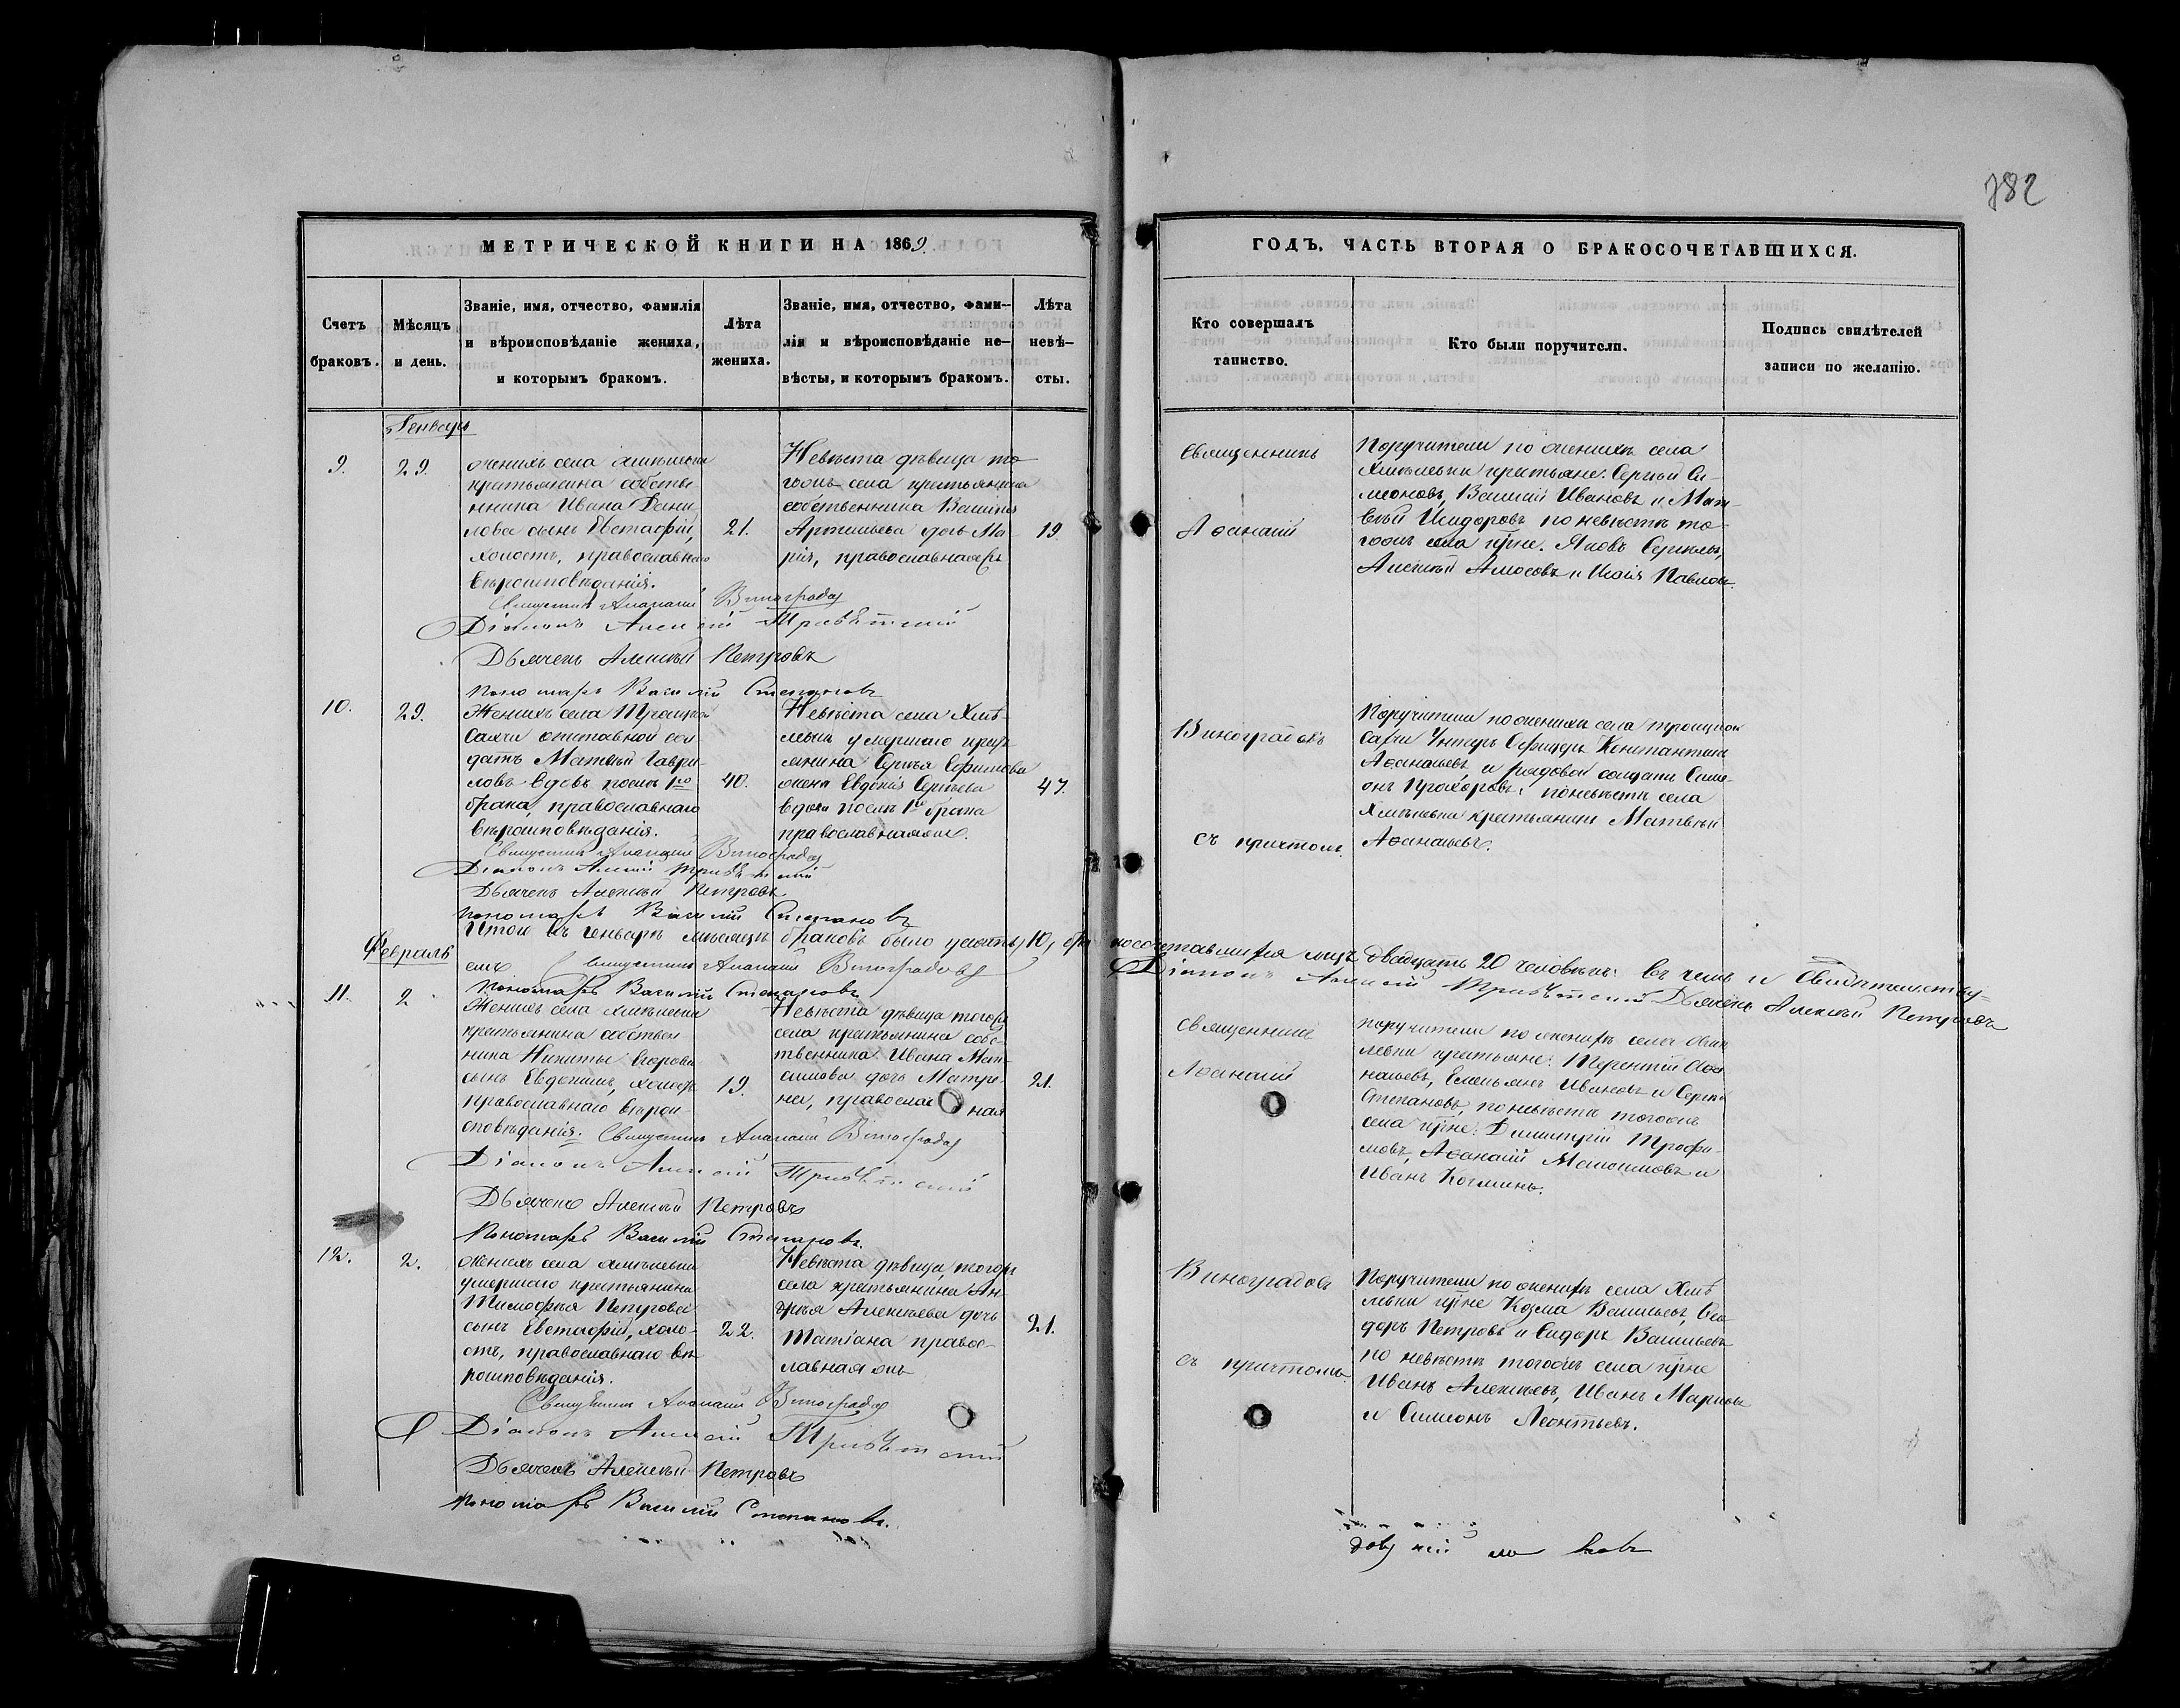 782
МЕТРИЧЕСКОЙ КНИГИ НА 1869.
ГОДЪ. ЧАСТЬ ВТОРАЯ О БРАКОСОЧЕТАВШИХСЯ.
Счетъ браковъ.
Мѣсяцъ и день.
Званіе, имя, отчество, фамилія
и вѣроисповѣданіе жениха,
и которымъ бракомъ.
Лѣта жениха.
Званіе, имя, отчество, фами-
лія и вѣроисповѣданіе не-
вѣсты, и которымъ бракомъ.
Лѣта невѣ-
сты.
Кто совершалъ
таинство.
Кто были поручители.
Подпись свидѣтелей
записи по желанію.
Генварь
9.
29.
женихъ села
крестьянина собстве
нника Ивана Дани
лова сынъ Евстафій,
холостъ, православнаго
вѣроисповѣданія.
21.
Невѣста дѣвица то
гожъ села крестьянина
собственника Василія
Артемьева дочь Ма
рія, православнаяжъ
19.
Священникъ
Аѳанасій
Поручители по женихѣ села
Хмѣлевки крестьяне: Сергѣй Си-
меоновъ, Василій Ивановъ и Мат-
вѣй Исидоровъ по невѣстѣ то-
гожъ села Яковъ
Алексѣй Амосовъ и Исаія Павловъ
Священникъ Аѳанасій Виноградов
Діаконъ Алексѣй
Дьячекъ Алексѣй Петровъ
Пономарь Василій Степановъ
10.
29.
Женихъ села Троицкой
Сахчи отставной сол
датъ Матвѣй Гаври-
ловъ вдовъ послѣ 1го
брака, православнаго
вѣроисповѣданія.
40.
Невѣста села Хмѣ-
левки умершаго кресть
янина Сергѣя Ефимова
жена Евдокія Сергѣева
вдова послѣ 1го брака
православнаяже.
47.
Виноградовъ
съ причтомъ.
Поручители по женихѣ села Троицкой
Сахчи Унтеръ Офицеръ Константинъ
Аѳанасьевъ, и рядовой солдатъ Симе-
онъ Прохоровъ; по невѣстѣ села
Хмѣлевки крестьянинъ Матвѣй
Аѳанасьевъ.
Священникъ Аѳанасій Виноградов
Діаконъ Алексѣй
Дьячекъ Алексѣй Петровъ
Пономарь Василій Степановъ
Итого въ Генварѣ мѣсяцѣ браковъ было 10, бра
косочетавшихся лицъ двадцать 20 человѣкъ. Въ чемъ и свидѣтельству-
емъ Священникъ Аѳанасій Виноградовъ
Діаконъ Алексѣй Дьячекъ Алексѣй Петровъ
Пономарь Василій Степановъ
Февраль
11.
2
Женихъ села Хмѣлевки
крестьянина собствен
ника Никиты Егорова
сынъ Евдокимъ, холостъ
православнаго вѣрои-
сповѣданія.
19.
Невѣста дѣвица тогожъ
села крестьянина собс-
твенника Ивана Мак-
симова дочь Матре-
на, православная
21.
Священникъ
Аѳанасій
поручители по женихѣ села Хмѣ
левки крестьяне: Терентій Аѳа
насьевъ, Емельянъ Ивановъ и Сергѣй
Степановъ, по невѣстѣ тогожъ
села Димитрій Трофи-
мовъ, Аѳанасій Максимовъ и
Иванъ Козминъ.
Священникъ Аѳанасій Виноградов
Діаконъ Алексѣй
Дьячекъ Алексѣй Петровъ
Пономарь Василій Степановъ.
12.
2.
женихъ села Хмѣлевки
умершаго крестьянина
Тимофѣя Петрова
сынъ Евстафій, холо-
стъ, православнаго вѣ
роисповѣданія.
22.
Невѣста дѣвица, тогожъ
села крестьянина Ан-
дрея Алексѣева дочь
Татіана правос-
лавная жъ
21.
Виноградовъ
съ причтомъ.
Поручители по женихѣ села Хмѣ
левки Козма Васильевъ, Ѳео
доръ Петровъ и Сидоръ Васильевъ
по невѣстѣ тогожъ села
Иванъ Алексѣевъ, Иванъ Марковъ
и Симеонъ Леонтьевъ.
Священникъ Аѳанасій Виноградов
Діаконъ Алексѣй
Дьячекъ Алексѣй Петровъ
Пономарь Василій Степановъ.